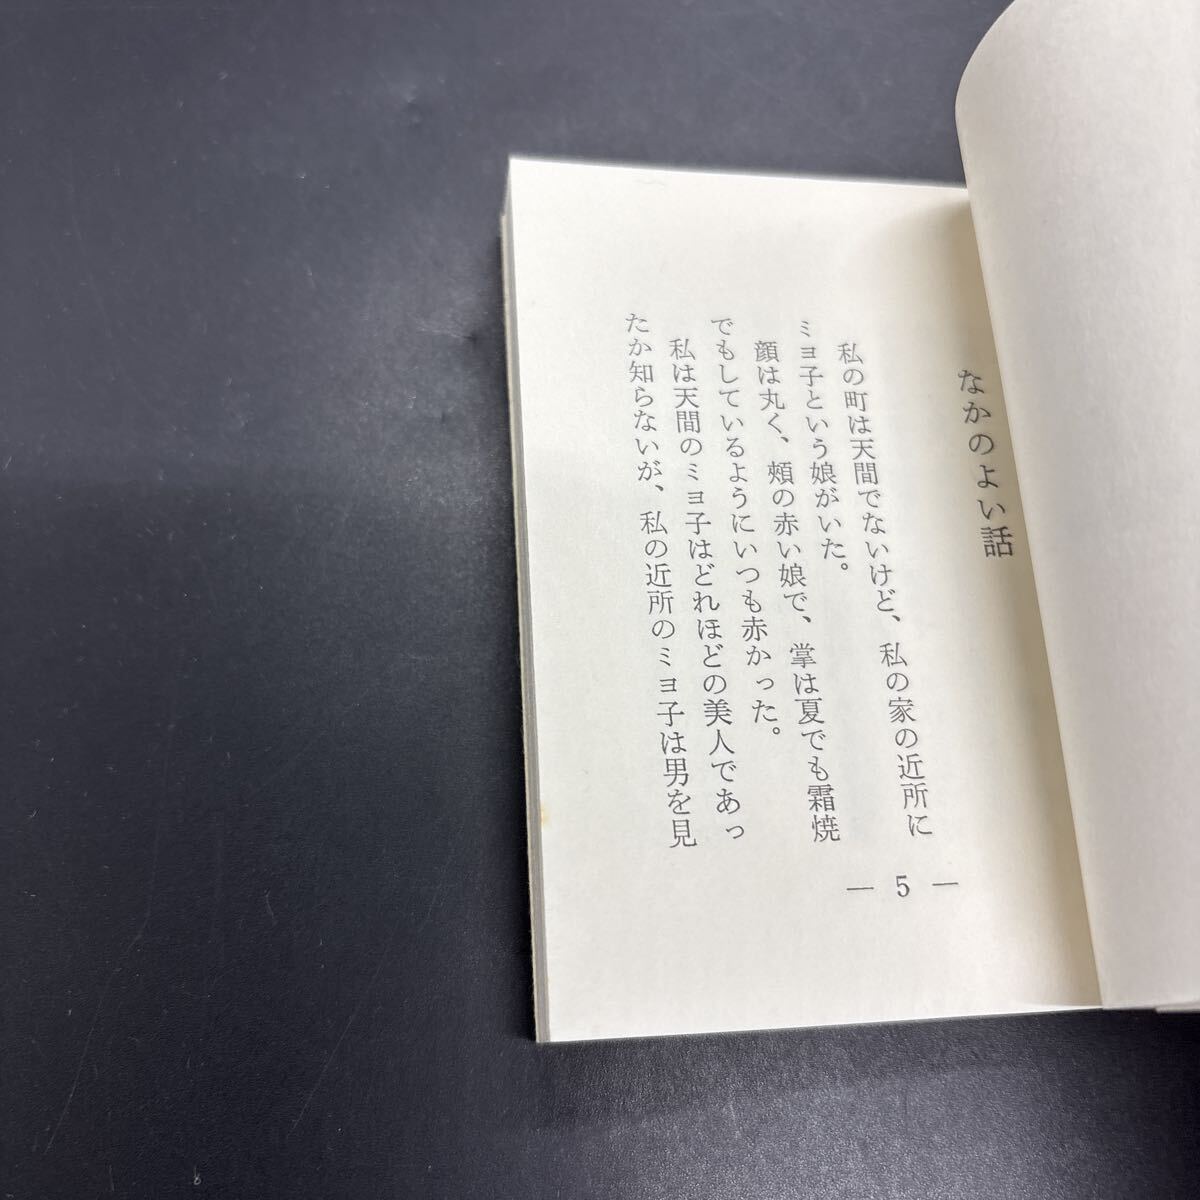 なかのよい話
私の町は天間でないけど、私の家の近所に
ミヨ子という娘がいた。
顔は丸く、頰の赤い娘で、掌は夏でも霜焼
でもしているようにいつも赤かった。
私は天間のミヨ子はどれほどの美人であっ
たか知らないが、私の近所のミヨ子は男を見
— 5 —